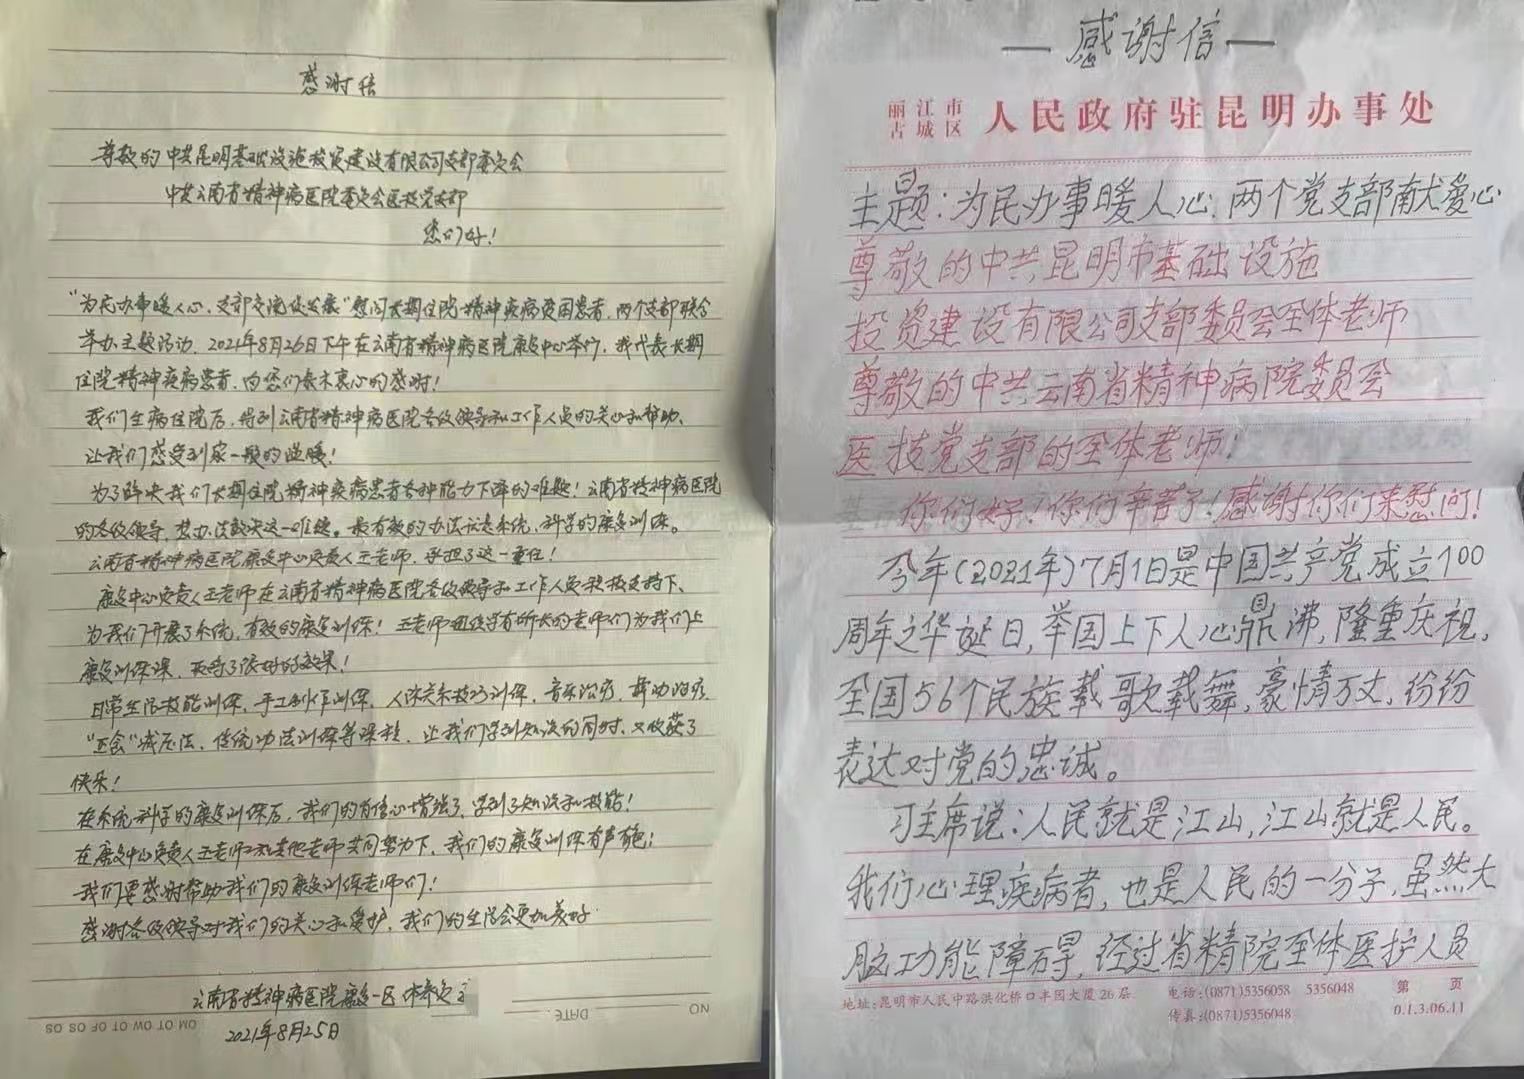 感谢信
尊敬的中共昆明基础设施投资建设有限公司支部委员会
中共云南省精神病医院委员会医技党支部
您们好！
“为民办事暖人心、支部交流促发展”慰问长期住院精神疾病贫困患者，两个支部联合
举办主题活动，2021年8月26日下午在云南省精神病医院康复中心举行，我代表长期
住院精神疾病患者，向您们表示衷心的感谢！
我们生病住院后，得到云南省精神病医院各级领导和工作人员的关心和帮助、
让我们感受到家一般的温暖！
为了解决我们长期住院精神疾病患者各种能力下降的难题！云南省精神病医院
的各级领导，想办法解决这一难题。最有效的办法就是系统，科学的康复训练。
云南省精神病医院康复中心负责人王老师，承担了这一重任！
康复中心负责人王老师在云南省精神病医院各级领导和工作人员积极支持下、
为我们开展了系统，有效的康复训练！王老师组织学有所长的老师们为我们上
康复训练课，取得了很好的效果！
日常生活技能训练、手工制作训练、人际关系技巧训练、音乐治疗、舞动治疗、
“正念”减压法、传统功法训练等课程，让我们学到知识的同时、又收获了
快乐！
在系统科学的康复训练后，我们的自信心增强了，学到了知识和技能！
在康复中心负责人王老师和其他老师共同努力下、我们的康复训练有声有色；
我们要感谢帮助我们的康复训练老师们！
感谢各级领导对我们的关心和爱护，我们的生活会更加美好
云南省精神病医院康复一区 休养员
2021年8月25日
NO
DATE
MO TU WE TH FR SA SU
—感谢信—
丽江市
古城区 人民政府驻昆明办事处
主题：为民办事暖人心，两个党支部献爱心
尊敬的中共昆明市基础设施
投资建设有限公司支部委员会全体老师
尊敬的中共云南省精神病院委员会
医技党支部的全体老师：
你们好！你们辛苦了！感谢你们来慰问！
今年（2021年）7月1日是中国共产党成立100
周年之华诞日，举国上下人心鼎沸，隆重庆祝，
全国56个民族载歌载舞，豪情万丈，纷纷
表达对党的忠诚。
习主席说：人民就是江山，江山就是人民。
我们心理疾病者，也是人民的一分子，虽然大
脑功能障碍，经过省精院全体医护人员
地址：昆明市人民中路洪化桥口丰园大厦26层 电话：(0871)5356058 5356048 第 页
传真：(0871)5356048 0.1.3.06.11